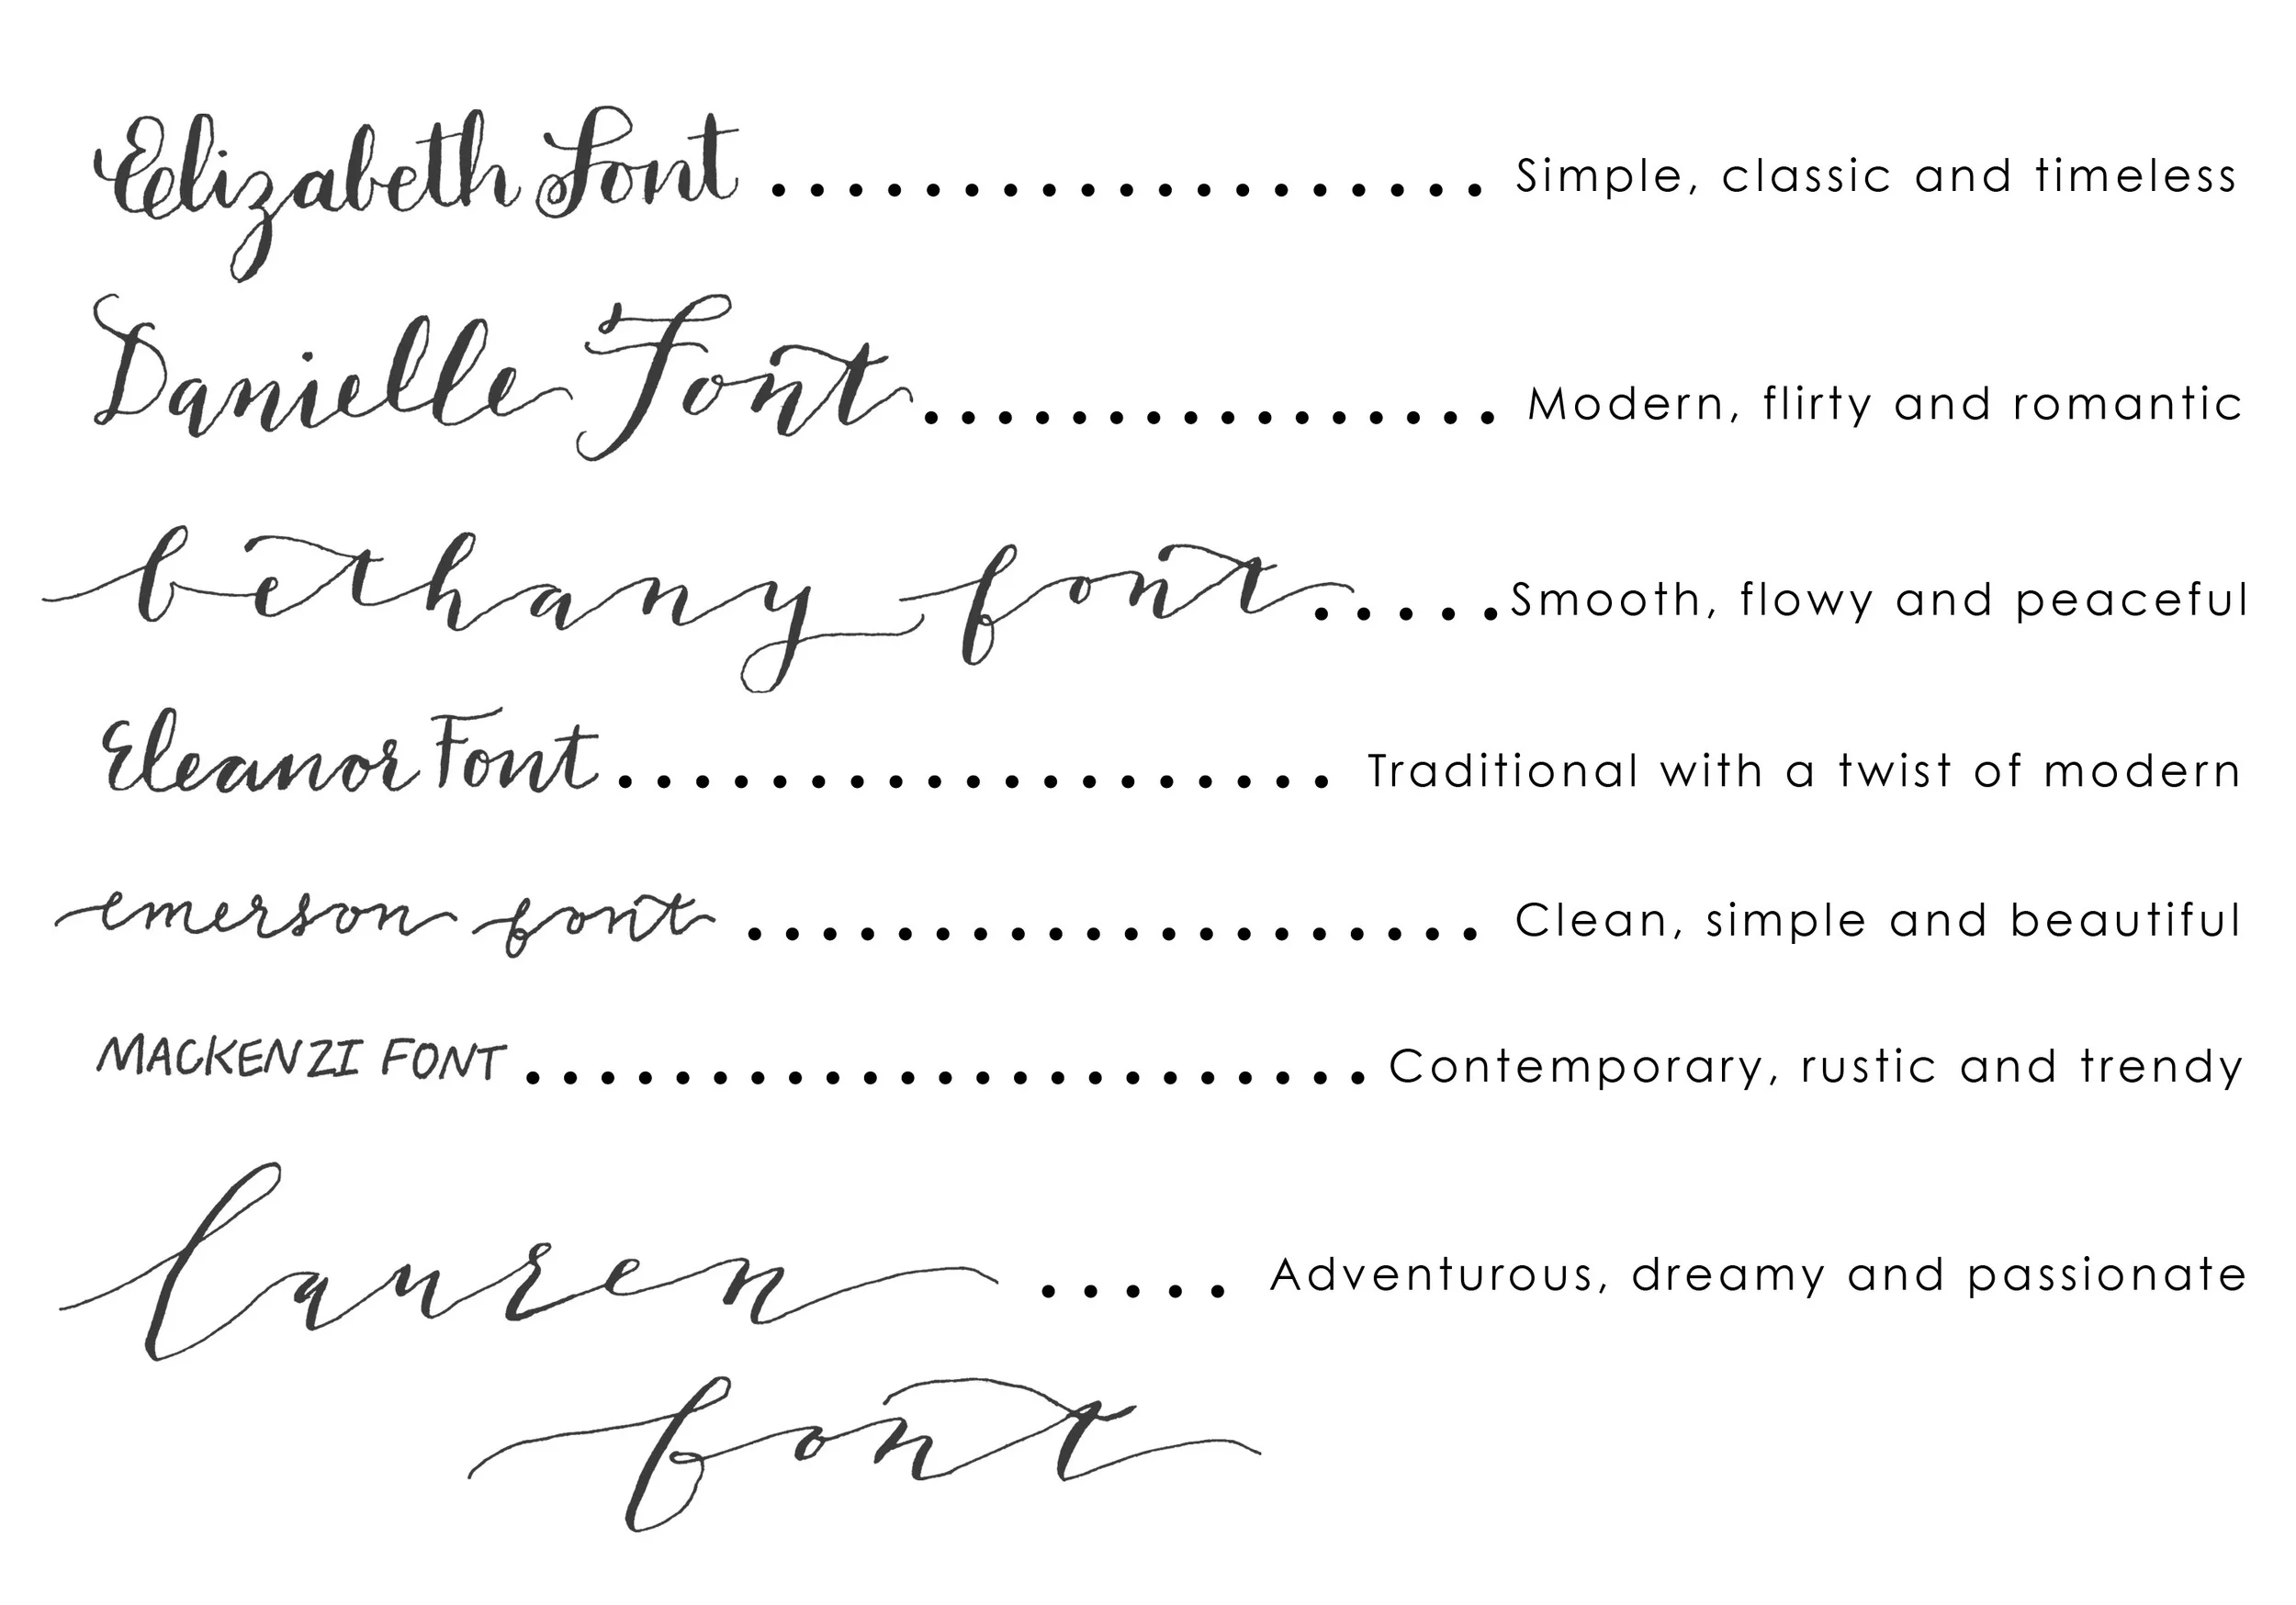 Elizabeth Font ................... Simple, classic and timeless
Danielle Font ................ Modern, flirty and romantic
bethany font ..... Smooth, flowy and peaceful
Eleanor Font ................... Traditional with a twist of modern
emerson font .................... Clean, simple and beautiful
MACKENZI FONT ....................... Contemporary, rustic and trendy
lauren ..... Adventurous, dreamy and passionate
font